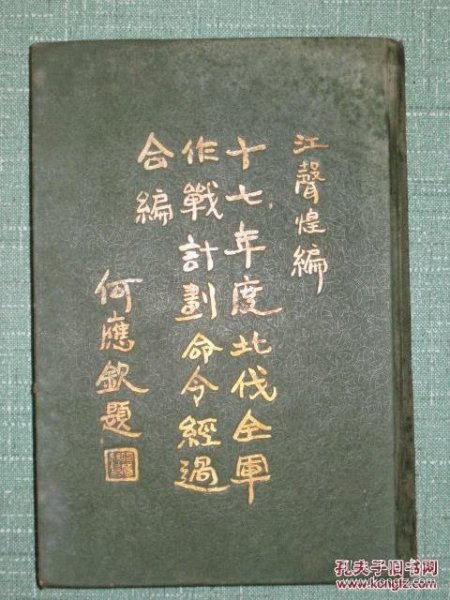 江聲煌編
十七年度北伐全軍
作戰計劃命令經過
合編
何應欽題
孔夫子旧书网
www.kongfz.com